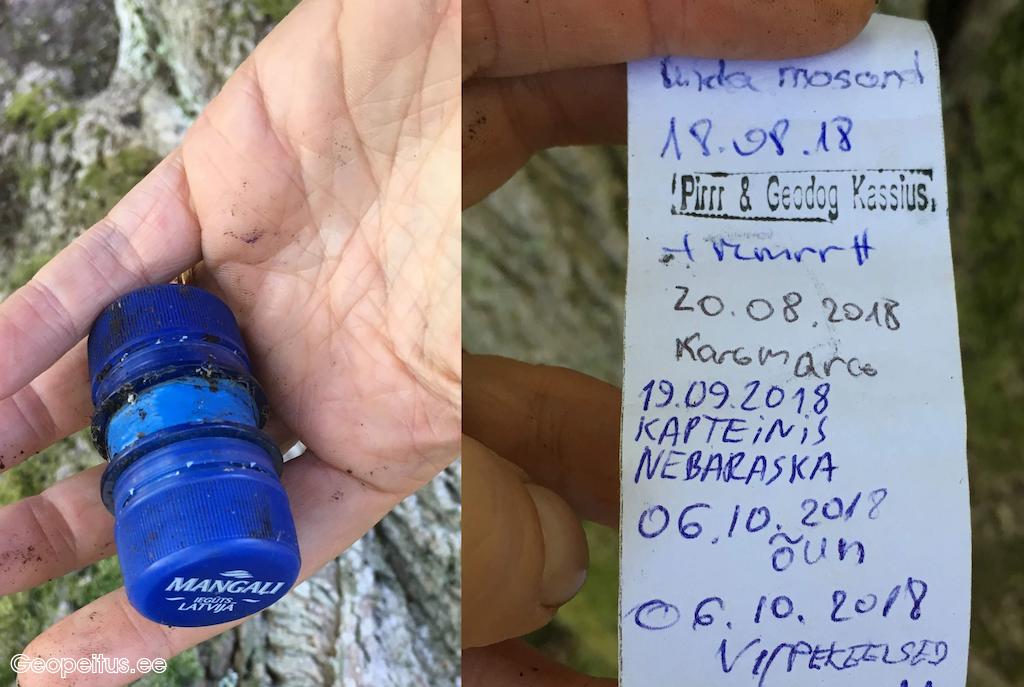 MANGAĻI
IEGŪTS
LATVIJĀ
Geopeitus.ee
18.08.18
Pirrr & Geodog Kassius.
20.08.2018
19.09.2018
KAPTEiNiS
NEBARASKA
06.10.2018
õun
06.10.2018